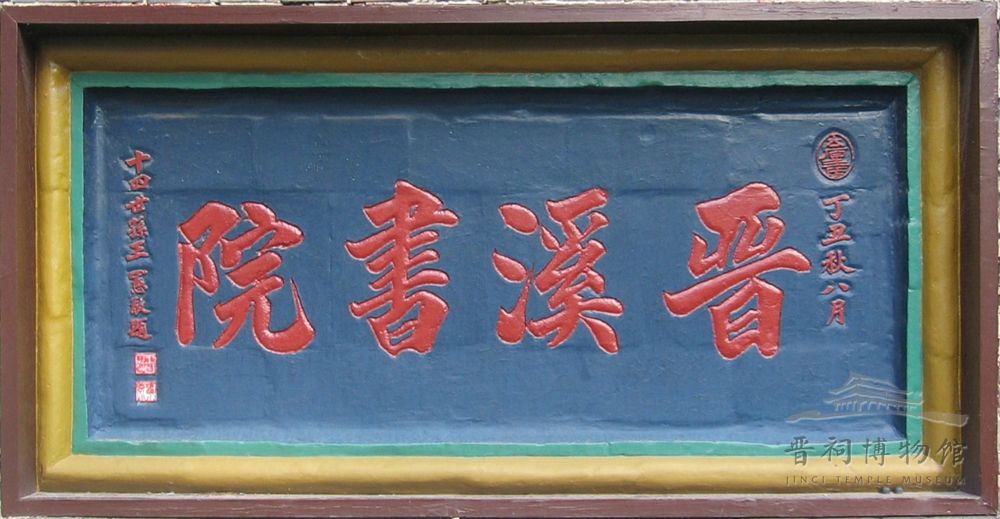 丁丑秋八月
晋溪書院
十四世孫王憲敬題
晋祠博物馆
JINCI TEMPLE MUSEUM